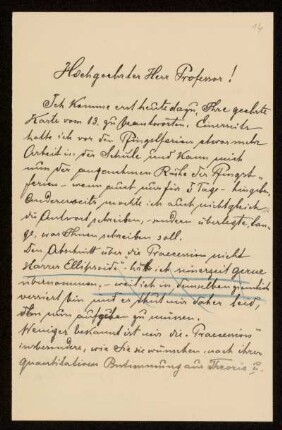 14
Hochgeehrter Herr Professor!
Ich komme erst heute dazu, Ihre geehrte
Karte vom 13. zu beantworten. Einerseits
hatte ich vor den Pfingstferien etwas mehr
Arbeit in der Schule und kann mich
nun der angenehmen Ruhe der Pfingst-
ferien – wenn auch nur für 5 Tage – hingeben,
Andererseits mochte ich auch nicht gleich
die Antwort schreiben, sondern überlegte lan-
ge, was Ihnen schreiben soll.
Den Abschnitt über die Praecession nicht
starrer Ellipsoide hätte ich seinerzeit gerne
übernommen, weil ich in demselben ziemlich
versiert bin und es thut mir daher leid,
ihn nun aufgeben zu müssen.
Weniger bekannt ist mir die „Praecession"
insbesondere, wie Sie sie wünschen, nach ihrer
quantitativen Bestimmung aus Theorie u.